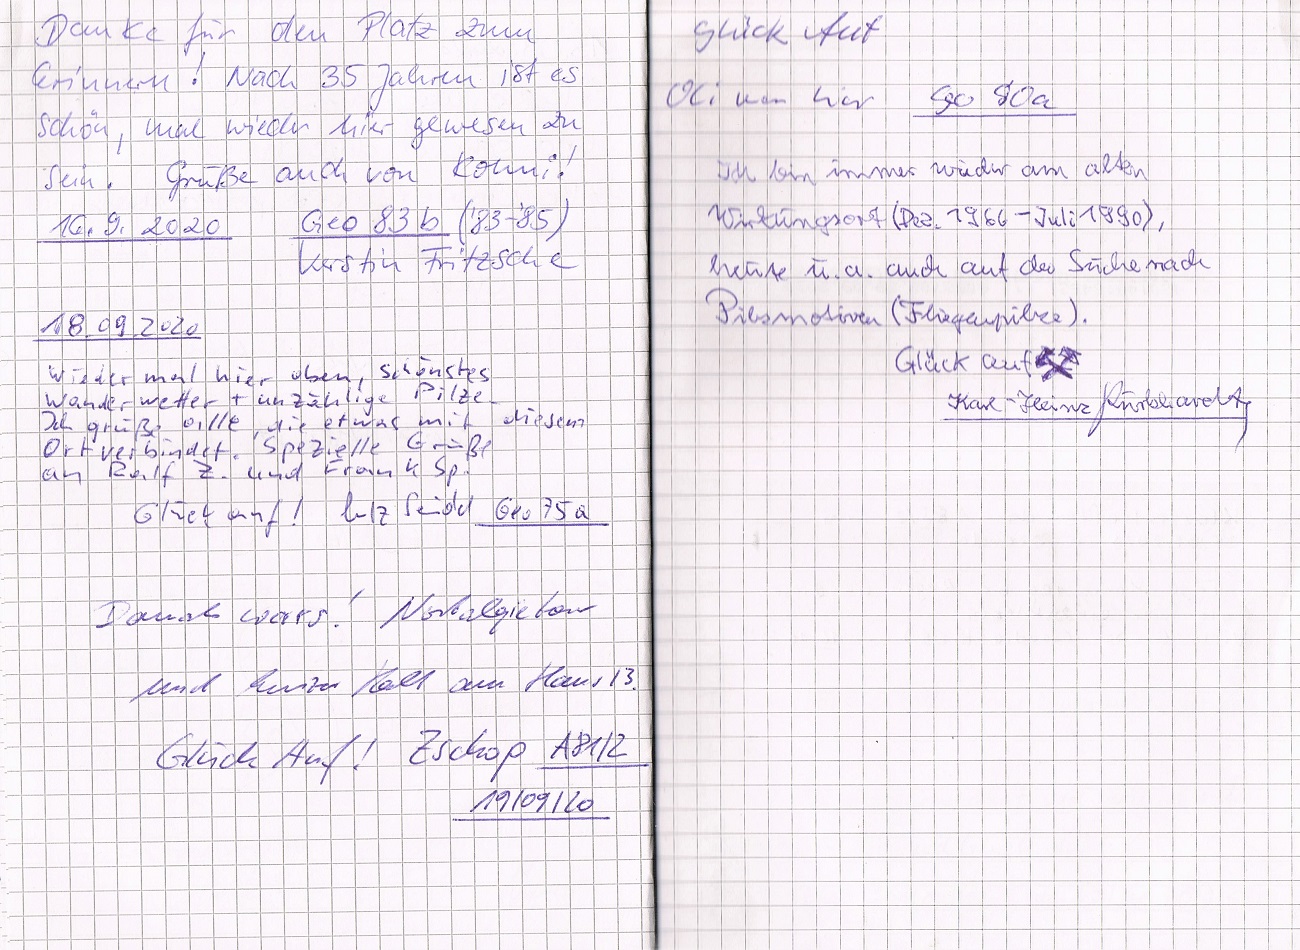 Danke für den Platz zum
Erinnern! Nach 35 Jahren ist es
schön, mal wieder hier gewesen zu
sein. Grüße auch von Konni!
16.9.2020 Geo 83 b ('83-'85)
Kerstin Fritzsche
18.09.2020
Wieder mal hier oben, schönstes
Wanderwetter + unzählige Pilze.
Ich grüße alle, die etwas mit diesem
Ort verbindet. Spezielle Grüße
an Ralf Z. und Frank Sp.
Glück auf! Lutz Seidel Geo 75a
Damals wars!
und keiner Halt am Haus 13.
Glück Auf! Zschop A81/2
19/09/20
Glück Auf
Oli war hier Geo 80a
Ich bin immer wieder am alten
Wirkungsort (Dez. 1966 - Juli 1990),
heute u.a. auch auf der Suche nach
Pilzmotiven (Fliegenpilze).
Glück auf
Karl-Heinz